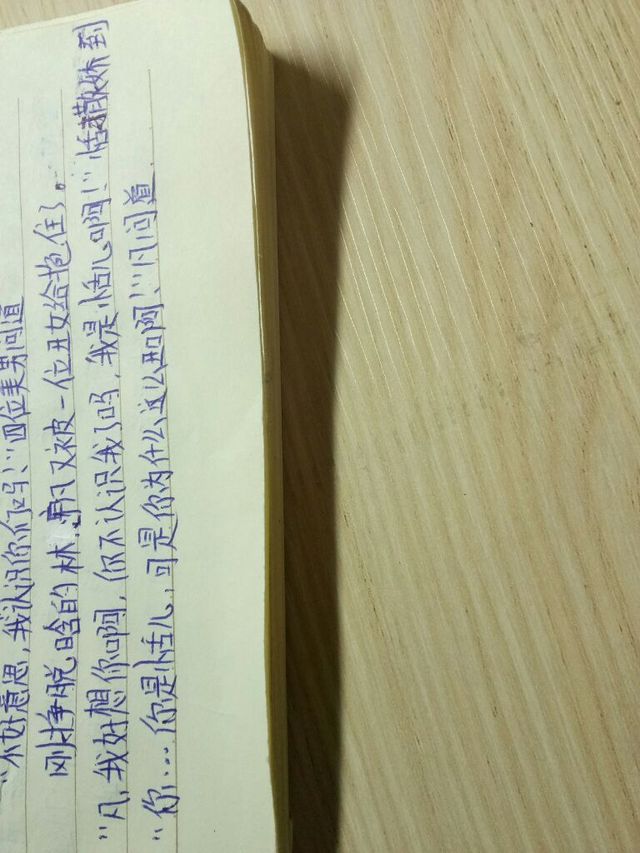 "不好意思,我认识你们吗?"四位美男问道
刚挣脱啥的林凡又被一位丑女给抱住了。
"凡,我好想你啊,你不认识我了吗,我是恬儿啊!"恬撒娇到
"你....你是恬儿,可是你为什么这么丑啊!"凡问道